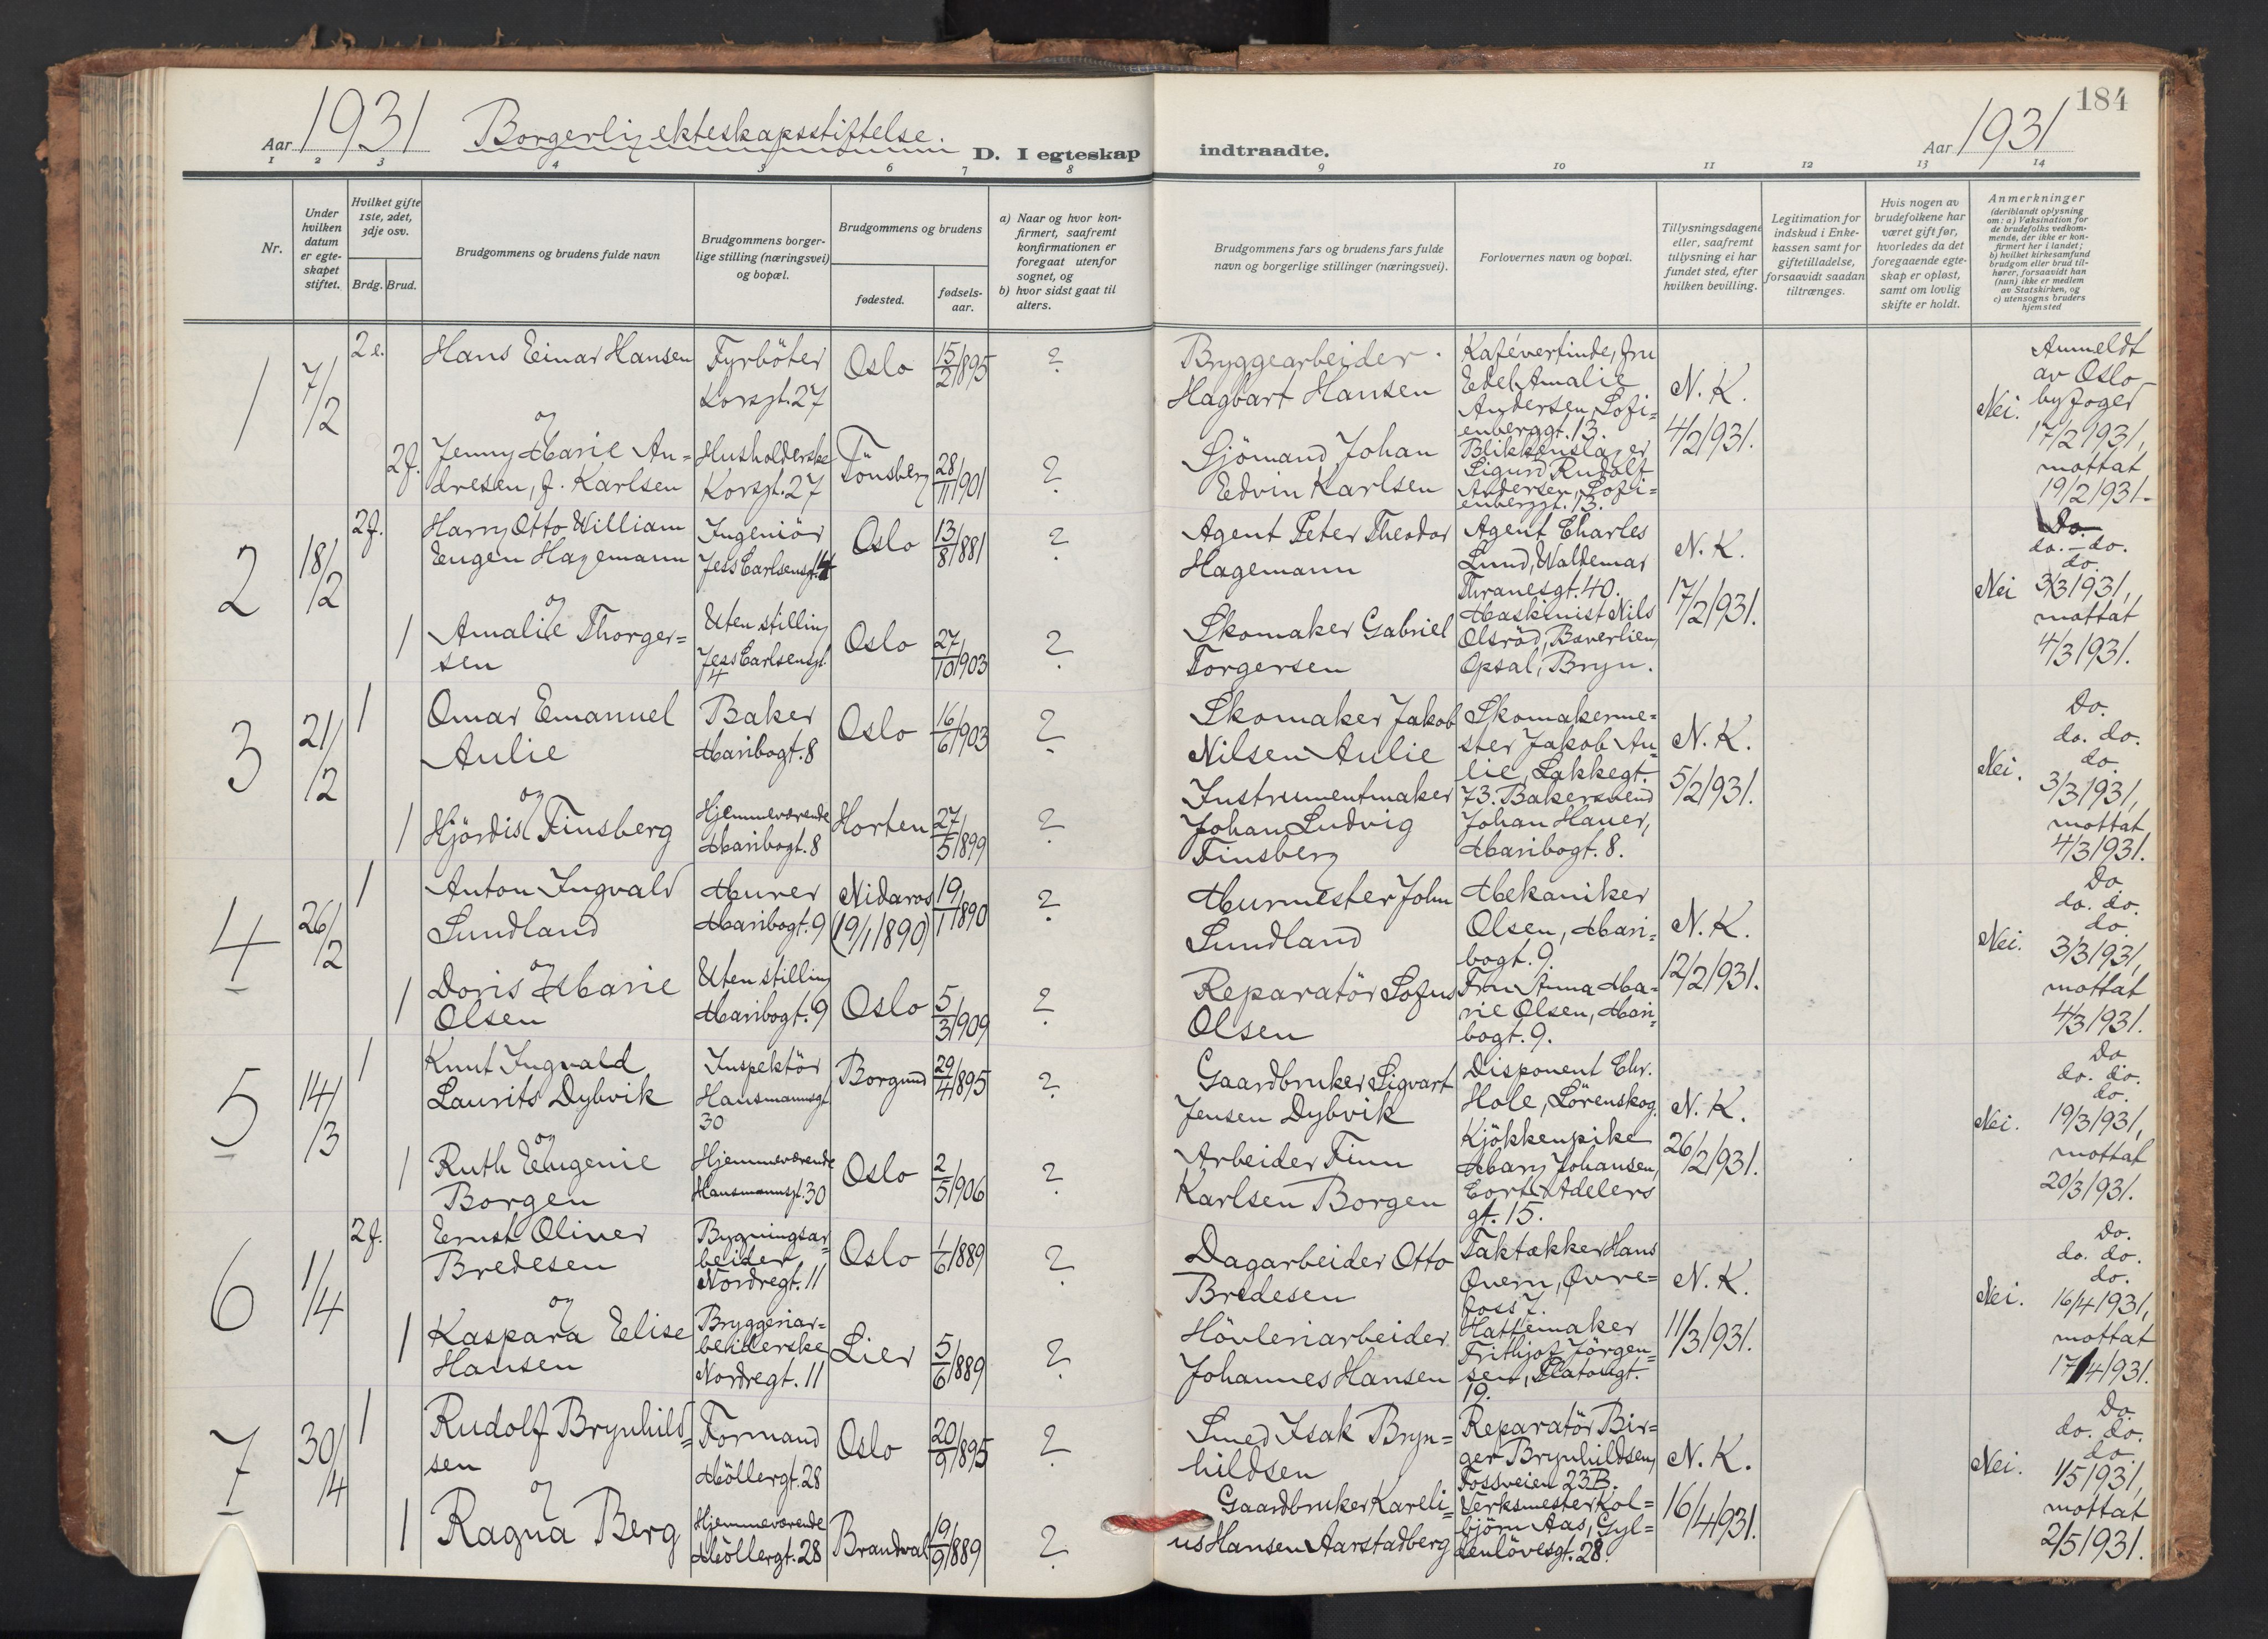 184
Aar 1931 Borgerlig ekteskapsstiftelse. D. I egteskap
indtraadte. Aar 1931
1 2 3 4 5 6 7 8
9 10 11 12 13 14
Nr.
Under hvilken datum er egteskapet stiftet.
Hvilket gifte 1ste, 2det, 3dje osv.
Brdg. Brud.
Brudgommens og brudens fulde navn
Brudgommens borgerlige stilling (næringsvei) og bopæl.
Brudgommens og brudens
fødested.
fødselsaar.
a) Naar og hvor konfirmert, saafremt konfirmationen er foregaat utenfor sognet, og
b) hvor sidst gaat til alters.
Brudgommens fars og brudens fars fulde navn og borgerlige stillinger (næringsvei).
Forlovernes navn og bopæl.
Tillysningsdagene eller, saafremt tillysning ei har fundet sted, efter hvilken bevilling.
Legitimation for indskud i Enkekassen samt for giftetilladelse, forsaavidt saadan tiltrænges.
Hvis nogen av brudefolkene har været gift før, hvorledes da det foregaaende egteskap er opløst, samt om lovlig skifte er holdt.
Anmerkninger
(deriblandt oplysning om: a) Vaksination for de brudefolks vedkommende, der ikke er konfirmert her i landet;
b) hvilket kirkesamfund brudgom eller brud tilhører, forsaavidt han (hun) ikke er medlem av Statskirken, og
c) utensogns bruders hjemsted
1
7/2
2 e.
Hans Einar Hansen
Fyrböter
Korsgt. 27
Oslo
15/2 1895
?
Bryggearbeider
Hagbart Hansen
Kafévertinde, fru
Edel Amalie
Andersen, Sofi=
enberggt. 13.
N. K.
4/2 1931.
Nei.
Anmeldt
av Oslo
byfoged
17/2 1931,
mottat
19/2 1931.
og
2 f.
Jenny Marie An=
dresen, f. Karlsen
Husholderske
Korsgt. 27
Tönsberg
28/11 1901
?
Sjömand Johan
Edvin Karlsen
Blikkenslager
Sigurd Rudolf
Andersen, Sofi=
enberggt. 13.
2
18/2
2 f.
Harry Otto William
Eugen Hagemann
Ingeniör
Jess Carlsensgt. 4
Oslo
13/8 1881
?
Agent Peter Theodor
Hagemann
Agent Charles
Lund, Waldemar
Thranesgt. 40.
N. K.
17/2 1931.
Nei
Do.
do. - do.
do.
3/3 1931,
mottat
4/3 1931.
og
1
Amalie Thorger=
sen
Uten stilling
Jess Carlsensgt.
4
Oslo
27/10 1903
?
Skomaker Gabriel
Torgersen
Maskinist Nils
Olsröd, Bæverlien,
Opsal, Bryn.
3
21/2
1
Omar Emanuel
Aulie
Baker
Maribogt. 8
Oslo
16/6 1903
?
Skomaker Jakob
Nilsen Aulie
Skomakerme=
ster Jakob Au=
lie, Lakkegt.
73.
N. K.
5/2 1931.
Nei.
Do.
do. do.
do.
3/3 1931,
mottat
4/3 1931.
og
1
Hjördis Finsberg
Hjemmeværende
Maribogt. 8
Horten
27/5 1899
?
Instrumentmaker
Johan Ludvig
Finsberg
Bakersvend
Johan Hauer,
Maribogt. 8.
4
26/2
1
Anton Ingvald
Sundland
Murer
Maribogt. 9
Nidaros
(19/1 1890)
19/1 1890
?
Murmester John
Sundland
Mekaniker
Olsen, Mari=
bogt. 9.
N. K.
12/2 1931.
Nei.
Do.
do. do.
do.
3/3 1931,
mottat
4/3 1931.
og
1
Doris Marie
Olsen
Uten stilling
Maribogt. 9
Oslo
5/3 1909
?
Reparatör Sofus
Olsen
Fru Anna Ma=
rie Olsen, Mari=
bogt. 9.
5
14/3
1
Knut Ingvald
Laurits Dybvik
Inspektör
Hausmannsgt.
30
Borgund
29/4 1895
?
Gaardbruker Sigvart
Jensen Dybvik
Disponent Chr.
Hole, Lörenskog.
N. K.
26/2 1931.
Nei.
Do
do. do.
do.
19/3 1931,
mottat
20/3 1931.
og
1
Ruth Eugenie
Borgen
Hjemmeværende
Hausmannsgt. 30
Oslo
2/5 1906
?
Arbeider Finn
Karlsen Borgen
Kjökkenpike
Mary Johansen,
Cort Adelers
gt. 15.
6
1/4
2 f.
Ernst Oliver
Bredesen
Bygningsar=
beider
Nordregt. 11
Oslo
1/6 1889
?
Dagarbeider Otto
Bredesen
Taktækker Hans
Qvern, Övre=
foss 7.
N. K.
11/3 1931.
Nei.
Do.
do. do.
do.
16/4 1931,
mottat
17/4 1931.
og
1
Kaspara Elise
Hansen
Bryggeriar=
beiderske
Nordregt. 11
Lier
5/6 1889
?
Hövleriarbeider
Johannes Hansen
Hattemaker
Frithjof Jörgen=
sen, Platougt.
19.
7
30/4
1
Rudolf Brynhild=
sen
Formand
Möllergt. 28
Oslo
20/9 1895
?
Smed Isak Bryn=
hildsen
Reparatör Bir=
ger Brynhildsen,
Fossveien 23B.
N. K.
16/4 1931.
Nei.
Do.
do. do.
do.
1/5 1931,
mottat
2/5 1931.
og
1
Ragna Berg
Hjemmeværende
Möllergt. 28
Brandval
19/9 1889
?
Gaardbruker Kareli=
us Hansen Aarstadberg
Verksmester Kol=
björn Aas, Gyl=
denlövesgt. 28.